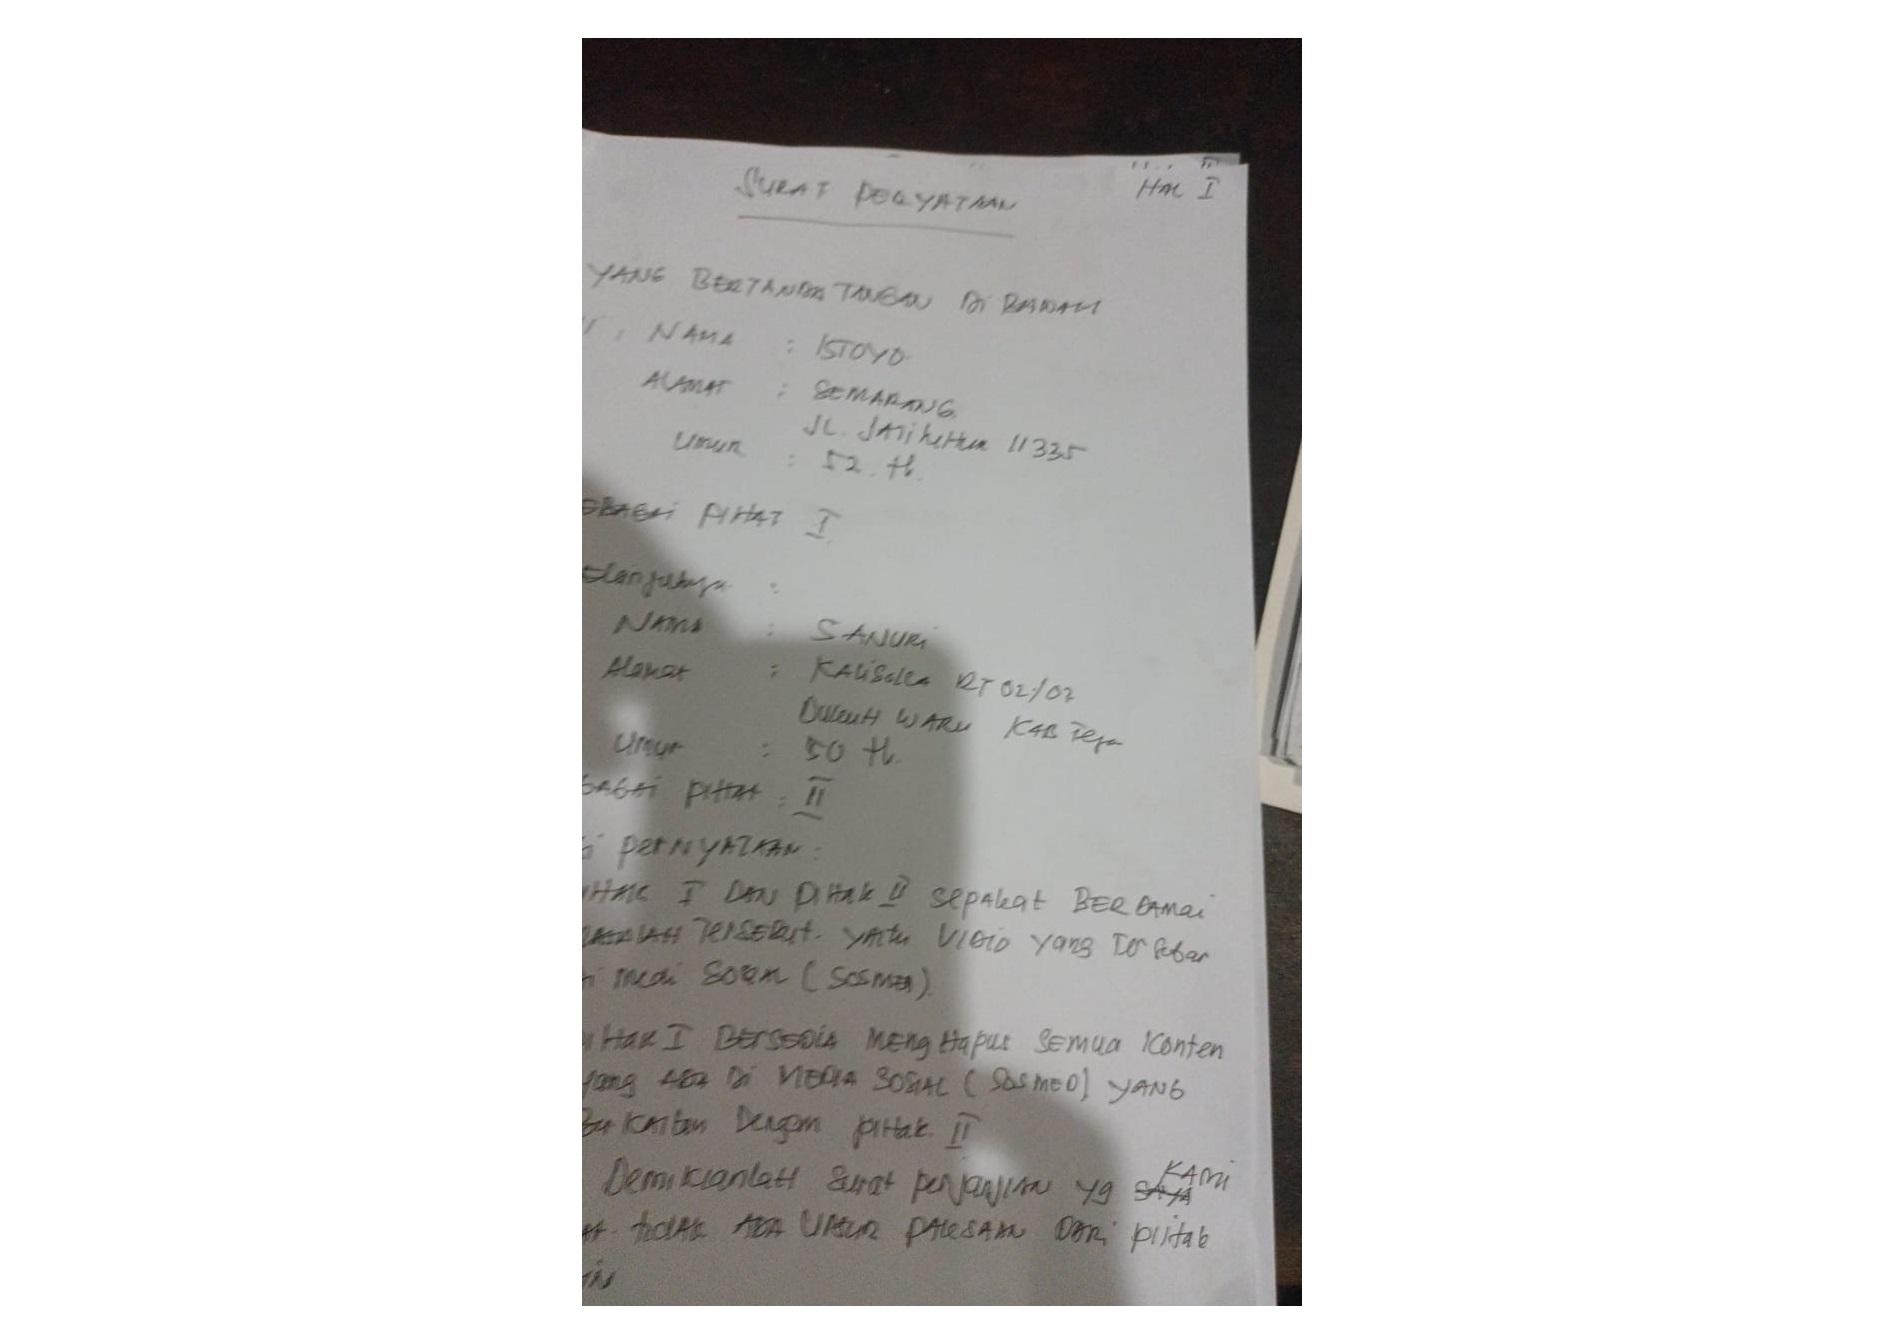 HAL I
SURAT PERYATAAN
YANG BERTANDA TANGAN Di BAWAH
NAMA : ISTOYO
ALAMAT : SEMARANG
JL. 11335
Umur : 52. th.
PIHAT I
:
NAMA : SANURi
Alamat : KALiSoka RT 02/02
DUKUH WARU KAB
Umur : 50 th.
PIHAK : II
PERNYATAAN :
I DAN PiHak II SepAkat BERDAMai
TerSEBut. yaitu ViDio yang TerSebar
medi (SOSMED).
I BERSEDIA MengHapus SEmua Konten
yang ADA Di MEDIA SOSIAL (SOSMED) YANG
Dengan piHak II
DemikianlaH Surat perjanjian yg KAMi
tidak ADA UNSUR PAKSAAN DARi piHak